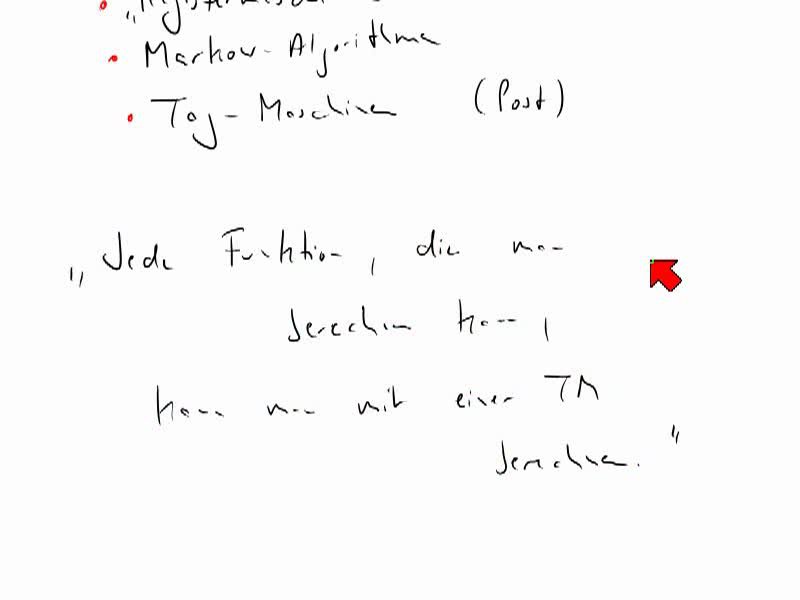 • Markov-Algorithmen
• Tag-Maschinen (Post)
„Jede Funktion, die man
berechnen kann,
kann man mit einer TM
berechnen."